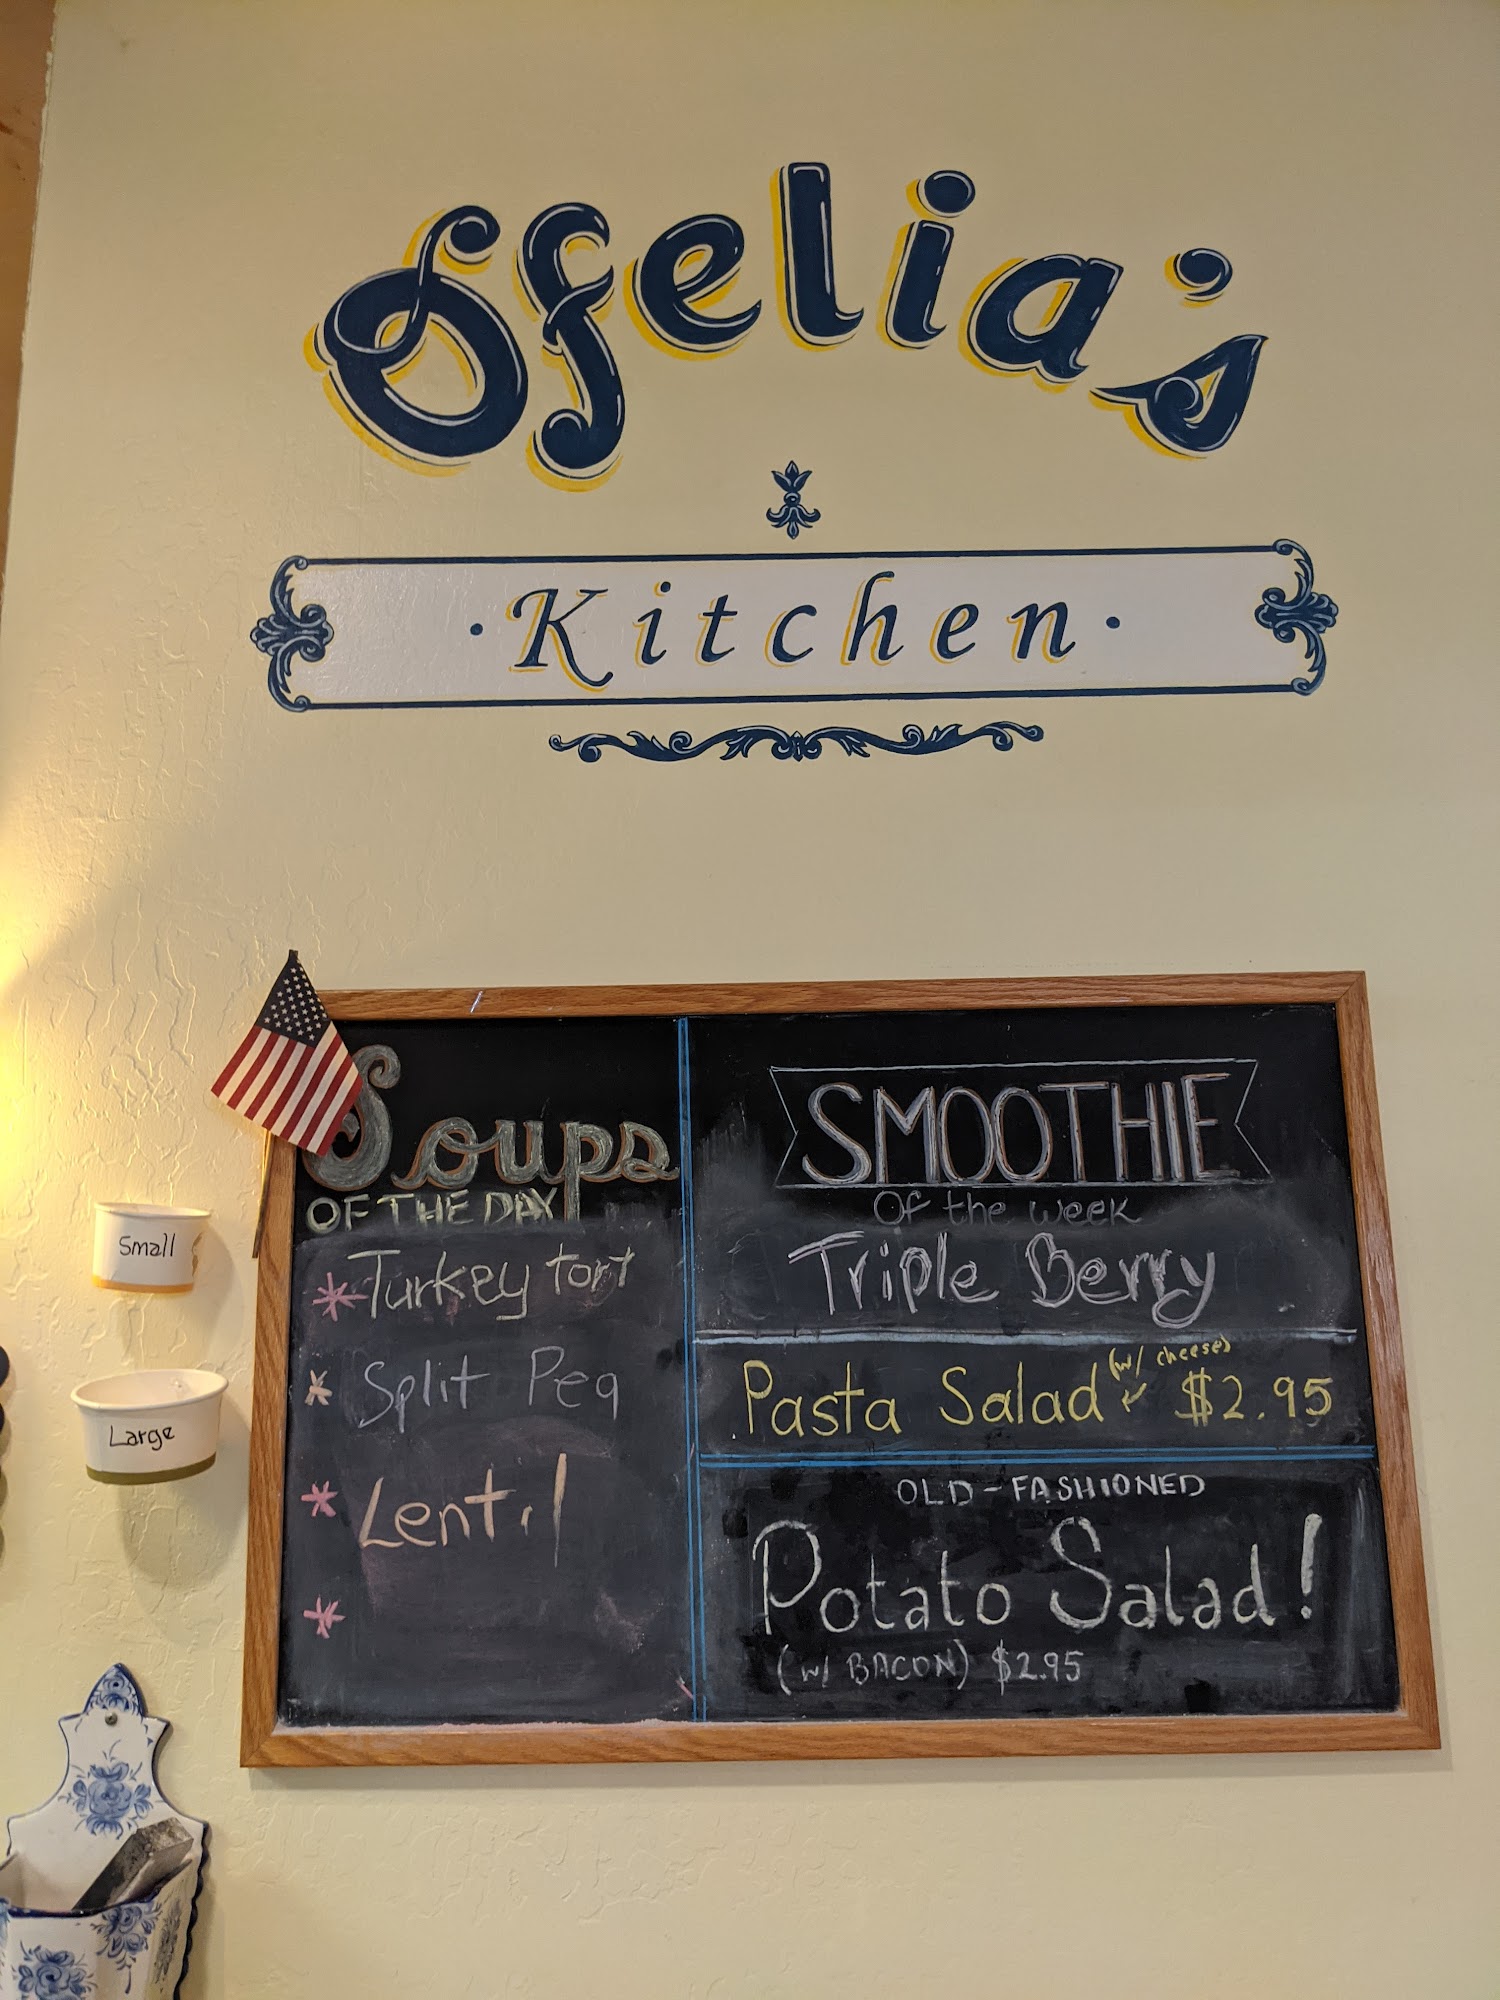 Ofelia's
· Kitchen ·
Soups
OF THE DAY
* Turkey tort
* Split Pea
* Lentil
*
SMOOTHIE
Of the week
Triple Berry
Pasta Salad (w/ cheese) $2.95
OLD-FASHIONED
Potato Salad!
(w/ BACON) $2.95
Small
Large